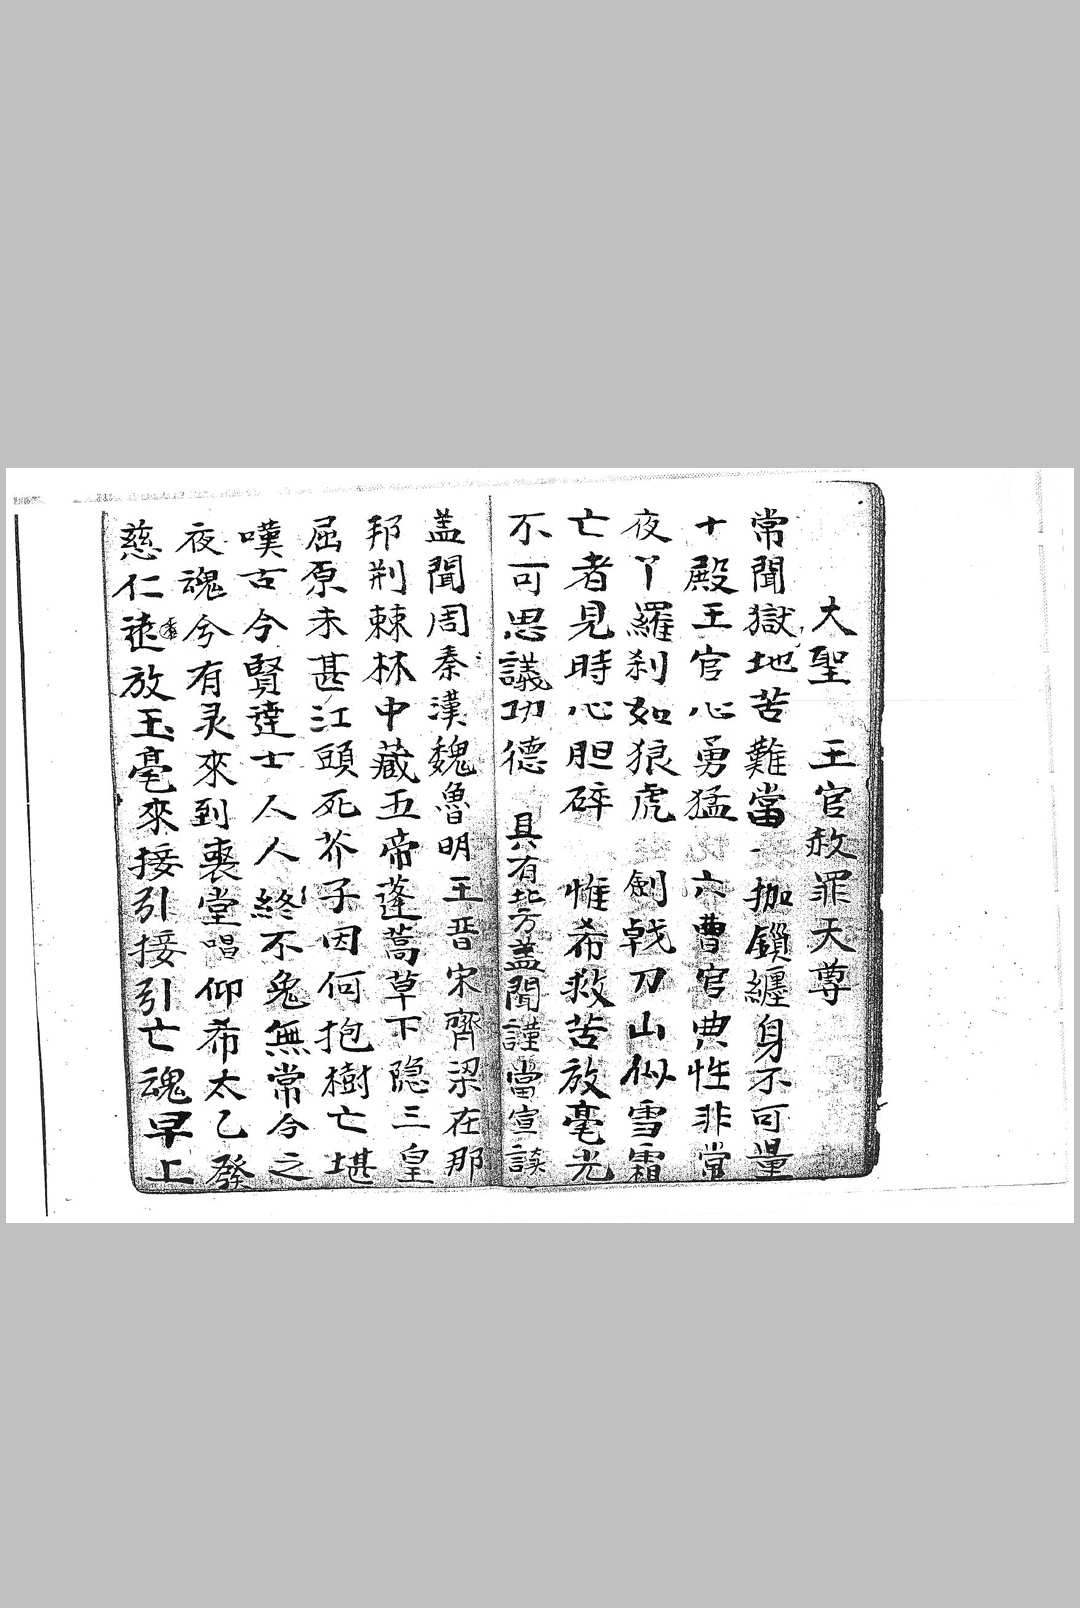 大聖 王官赦罪天尊
常聞獄地苦難當 枷鎖纏身不可量
十殿王官心勇猛 六曹官典性非常
夜丫羅刹如狼虎 劍戟刀山似雪霜
亡者見時心胆碎 惟希救苦放毫光
不可思議功德 具有些方盖聞謹當宣談
盖聞周秦漢魏魯明王晋宋齊梁在那
邦荆棘林中藏五帝蓬蒿草下隐三皇
屈原未甚江頭死芥子因何抱樹亡堪
嘆古今賢達士人人終不免無常今之
夜魂兮有灵來到喪堂唱仰希太乙發
慈仁遠放玉毫來接引接引亡魂早上